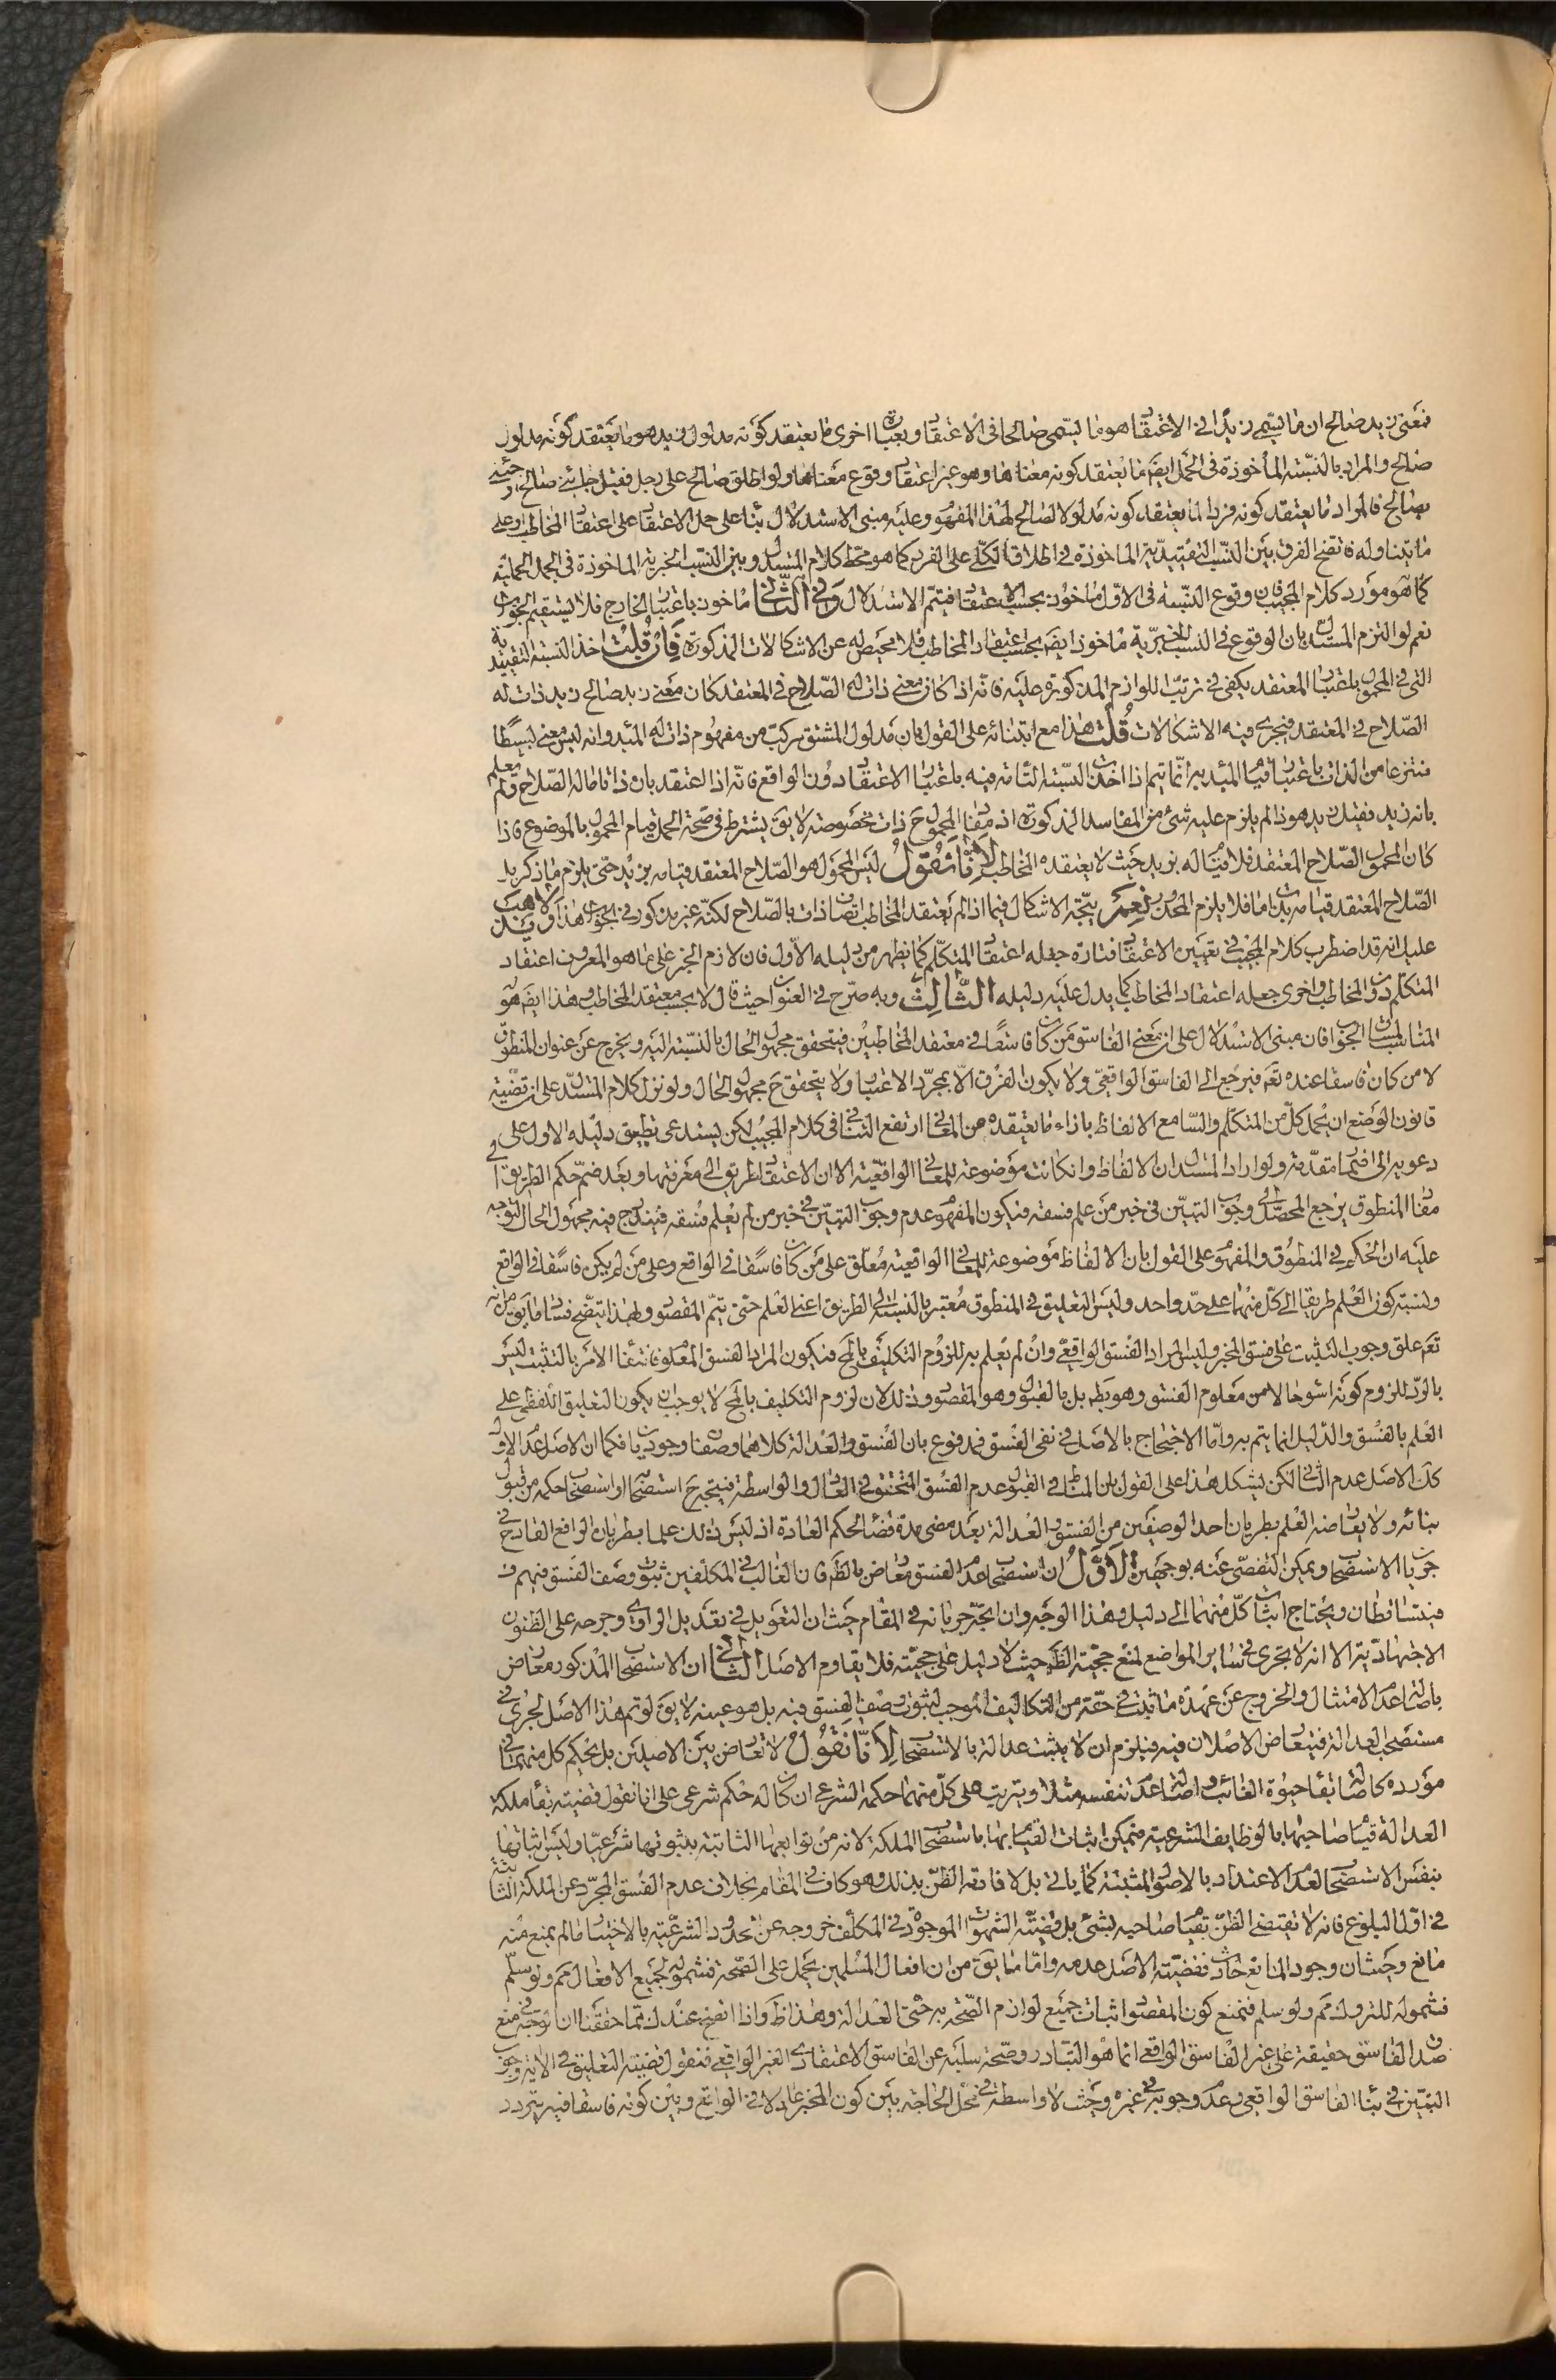 فمعنى زيد صالح ان ما يسمى زيدا في الاعتقاد هو ما يسمى صالحا في الاعتقاد وبعبارة اخرى ما يعتقد كونه مدلول زيد هو ما يعتقد كونه مدلول
صالح والمراد بالنسبة المأخوذة في الحمل ايضا ما يعتقد كونه معناها وهو غير اعتقاد وقوع معناها ولو اطلق صالح على رجل فقيل جائني صالح او جئني
بصالح فالمراد ما يعتقد كونه فردا لما يعتقد كونه مدلولا لصالح لهذا المفهوم وعليه مبنى الاستدلال بناء على حمل الاعتقاد على اعتقاد المخاطب او على
ما يتناوله فاتضح الفرق بين النسب التقييدية الماخوذة في اطلاق الكلي على الفرد كما هو محط كلام المستدل وبين النسب الخبرية الماخوذة في الجمل الحملية
كما هو مورد كلام المجيب فان وقوع النسبة في الاول ماخوذ بحسب الاعتقاد فيتم الاستدلال وفي الثاني ماخوذ باعتبار الخارج فلا يستقيم الجواب
نعم لو التزم المستدل بان الوقوع في النسب الخبرية ماخوذ ايضا بحسب اعتقاد المخاطب فلا محيص له عن الاشكالات المذكورة فان قلت اخذ النسبة التقييدية
التي في المحمول باعتبار المعتقد يكفي في ترتب اللوازم المذكورة عليه فانه اذا كان معنى ذات له الصلاح في المعتقد كان معنى زيد صالح زيد ذات له
الصلاح في المعتقد فيجري فيه الاشكالات قلت هذا مع ابتنائه على القول بان مدلول المشتق مركب من مفهوم ذات له المبدء وانه ليس معنى بسيطا
منتزعا من الذات باعتبار قيام المبدء به انما يتم اذا اخذت النسبة التامة فيه باعتبار الاعتقاد دون الواقع فانه اذا اعتقد بان ذاتا ما له الصلاح ولم يعلم
بانه زيد فقيل زيد هو ذا لم يلزم عليه شئ من المفاسد المذكورة اذ مفاد المحمول ح ذات مخصوصة لا يق يشترط في صحة الحمل قيام المحمول بالموضوع فاذا
كان المحمول الصلاح المعتقد فلا قيام له بزيد حيث لا يعتقده المخاطب لانا نقول ليس المحمول هو الصلاح المعتقد قيامه بزيد حتى يلزم ما ذكر بل
الصلاح المعتقد قيامه بذات ما فلا يلزم المحذور نعم يتجه الاشكال فيما اذا لم يعتقد المخاطب اتصاف ذات بالصلاح لكنه غير مذكور في الجواب هذا ولا يذهب
عليك انه قد اضطرب كلام المجيب في تعيين الاعتقاد فتارة جعله اعتقاد المتكلم كما يظهر من دليله الاول فان لازم الخبر على ما هو المعروف اعتقاد
المتكلم دون المخاطب واخرى جعله اعتقاد المخاطب كما يدل عليه دليله الثالث وبه صرح في العنوان حيث قال لا بحسب معتقد المخاطب وهذا ايضا هو
المناسب للجواب فان مبنى الاستدلال على ان معنى الفاسق من كان فاسقا في معتقد المخاطبين فيتحقق مجهول الحال بالنسبة اليه ويخرج عن عنوان المنطوق
لا من كان فاسقا عنده تعم فيرجع الى الفاسق الواقعي ولا يكون الفرق الا بمجرد الاعتبار ولا يتحقق ح مجهول الحال ولو نزل كلام المستدل على ان قضية
قانون الوضع ان يحمل كل من المتكلم والسامع الالفاظ بازاء ما يعتقده من المعاني ارتفع التنافي في كلام المجيب لكن يستدعي تطبيق دليله الاول على
دعويه الى اضمار مقدمة ولو اراد المستدل ان الالفاظ وان كانت موضوعة للمعاني الواقعية الا ان الاعتقاد طريق الى معرفتها وبعد ضم حكم الطريق الى
مفاد المنطوق يرجع المحصل الى وجوب التبين في خبر من علم فسقه فيكون المفهوم عدم وجوب التبين في خبر من لم يعلم فسقه فيندرج فيه مجهول الحال لتوجه
عليه ان الحكم في المنطوق والمفهوم على القول بان الالفاظ موضوعة للمعاني الواقعية معلق على من كان فاسقا في الواقع وعلى من لم يكن فاسقا في الواقع
ونسبة كون العلم طريقا الى كل منهما على حد واحد وليس التعليق في المنطوق معتبرا بالنسبة الى الطريق اعني العلم حتى يتم المقصود ولهذا يتضح فساد ما يق من انه
تعم علق وجوب التثبت على فسق المخبر وليس المراد الفسق الواقعي وان لم يعلم به للزوم التكليف بالمح فيكون المراد الفسق المعلوم فانتفاء الامر بالتثبت ليس
بالرد للزوم كونه اسوء حالا من معلوم الفسق وهو بط بل بالقبول وهو المقصود وذلك لان لزوم التكليف بالمح لا يوجب ان يكون التعليق اللفظي على
العلم بالفسق والدليل انما يتم به واما الاحتجاج بالاصل في نفي الفسق فمدفوع بان الفسق والعدالة كلاهما وصفان وجوديان فكما ان الاصل عدم الاول
كك الاصل عدم الثاني لكن يشكل هذا على القول بان المناط في القبول عدم الفسق المتحقق في العادل والواسطة فيتجه ح استصحابا واستصحاب حكمه من قبول
بنائه ولا يعارضه العلم بطريان احد الوصفين من الفسق والعدالة بعد مضي مدة قضاء لحكم العادة اذ ليس ذلك علما بطريان الرافع القادح في
جريان الاستصحاب ويمكن التفصي عنه بوجهين الاول ان استصحاب عدم الفسق معارض بالظن فان الغالب في المكلفين ثبوت وصف الفسق فيهم
فيتساقطان ويحتاج اثبات كل منهما الى دليل وهذا الوجه وان اتجه جريانه في المقام حيث ان التعويل في تعديل الراوي وجرحه على الظنون
الاجتهادية الا انه لا يجري في ساير المواضع لمنع حجية الظن حيث لا دليل على حجيته فلا يقاوم الاصل الثاني ان الاستصحاب المذكور معارض
باصالة عدم الامتثال والخروج عن عهدة ما ثبت في حقه من التكاليف الموجب لثبوت وصف الفسق فيه بل هو عينه لا يق لو تم هذا الاصل لجرى في
مستصحب العدالة فيتعارض الاصلان فيه فيلزم ان لا يثبت عدالته بالاستصحاب لانا نقول لا تعارض بين الاصلين بل يحكم كل منهما في
مورده كاصالة بقاء حيوة الغائب واصالة عدم تنفسه مثلا ويترتب على كل منهما حكمه الشرعي ان كان له حكم شرعي على انا نقول قضية بقاء ملكة
العدالة قيام صاحبها بالوظايف الشرعية فيمكن اثبات القيام بها باستصحاب الملكة لانه من توابعها الثابتة بثبوتها شرعا وليس اثباتها
بنفس الاستصحاب لعدم الاعتداد بالاصول المثبتة كما ياتي بل لافادته الظن بذلك وهو كاف في المقام بخلاف عدم الفسق المجرد عن الملكة الثابتة
في اول البلوغ فانه لا يقتضي الظن بقيام صاحبه بشئ بل قضية الشهوات الموجودة في المكلف خروجه عن الحدود الشرعية بالاختيار ما لم يمنع منه
مانع وحيث ان وجود المانع حادث فقضية الاصل عدمه واما ما يق من ان افعال المسلمين يحمل على الصحة فشموله لجميع الافعال مم ولو سلم
فشموله للتروك مم ولو سلم فنمنع كون المقصود اثبات جميع لوازم الصحة به حتى العدالة وهذا ظ واذا اتضح عندك ما حققنا ان توجه منع
صدق الفاسق حقيقة على غير الفاسق الواقعي انما هو التبادر وصحة سلبه عن الفاسق الاعتقادي الغير الواقعي فنقول قضية التعليق في الاية وجوب
التبين في بناء الفاسق الواقعي وعدم وجوبه في غيره وحيث لا واسطة في محل الحاجة بين كون المخبر عادلا في الواقع وبين كونه فاسقا فيه يتردد